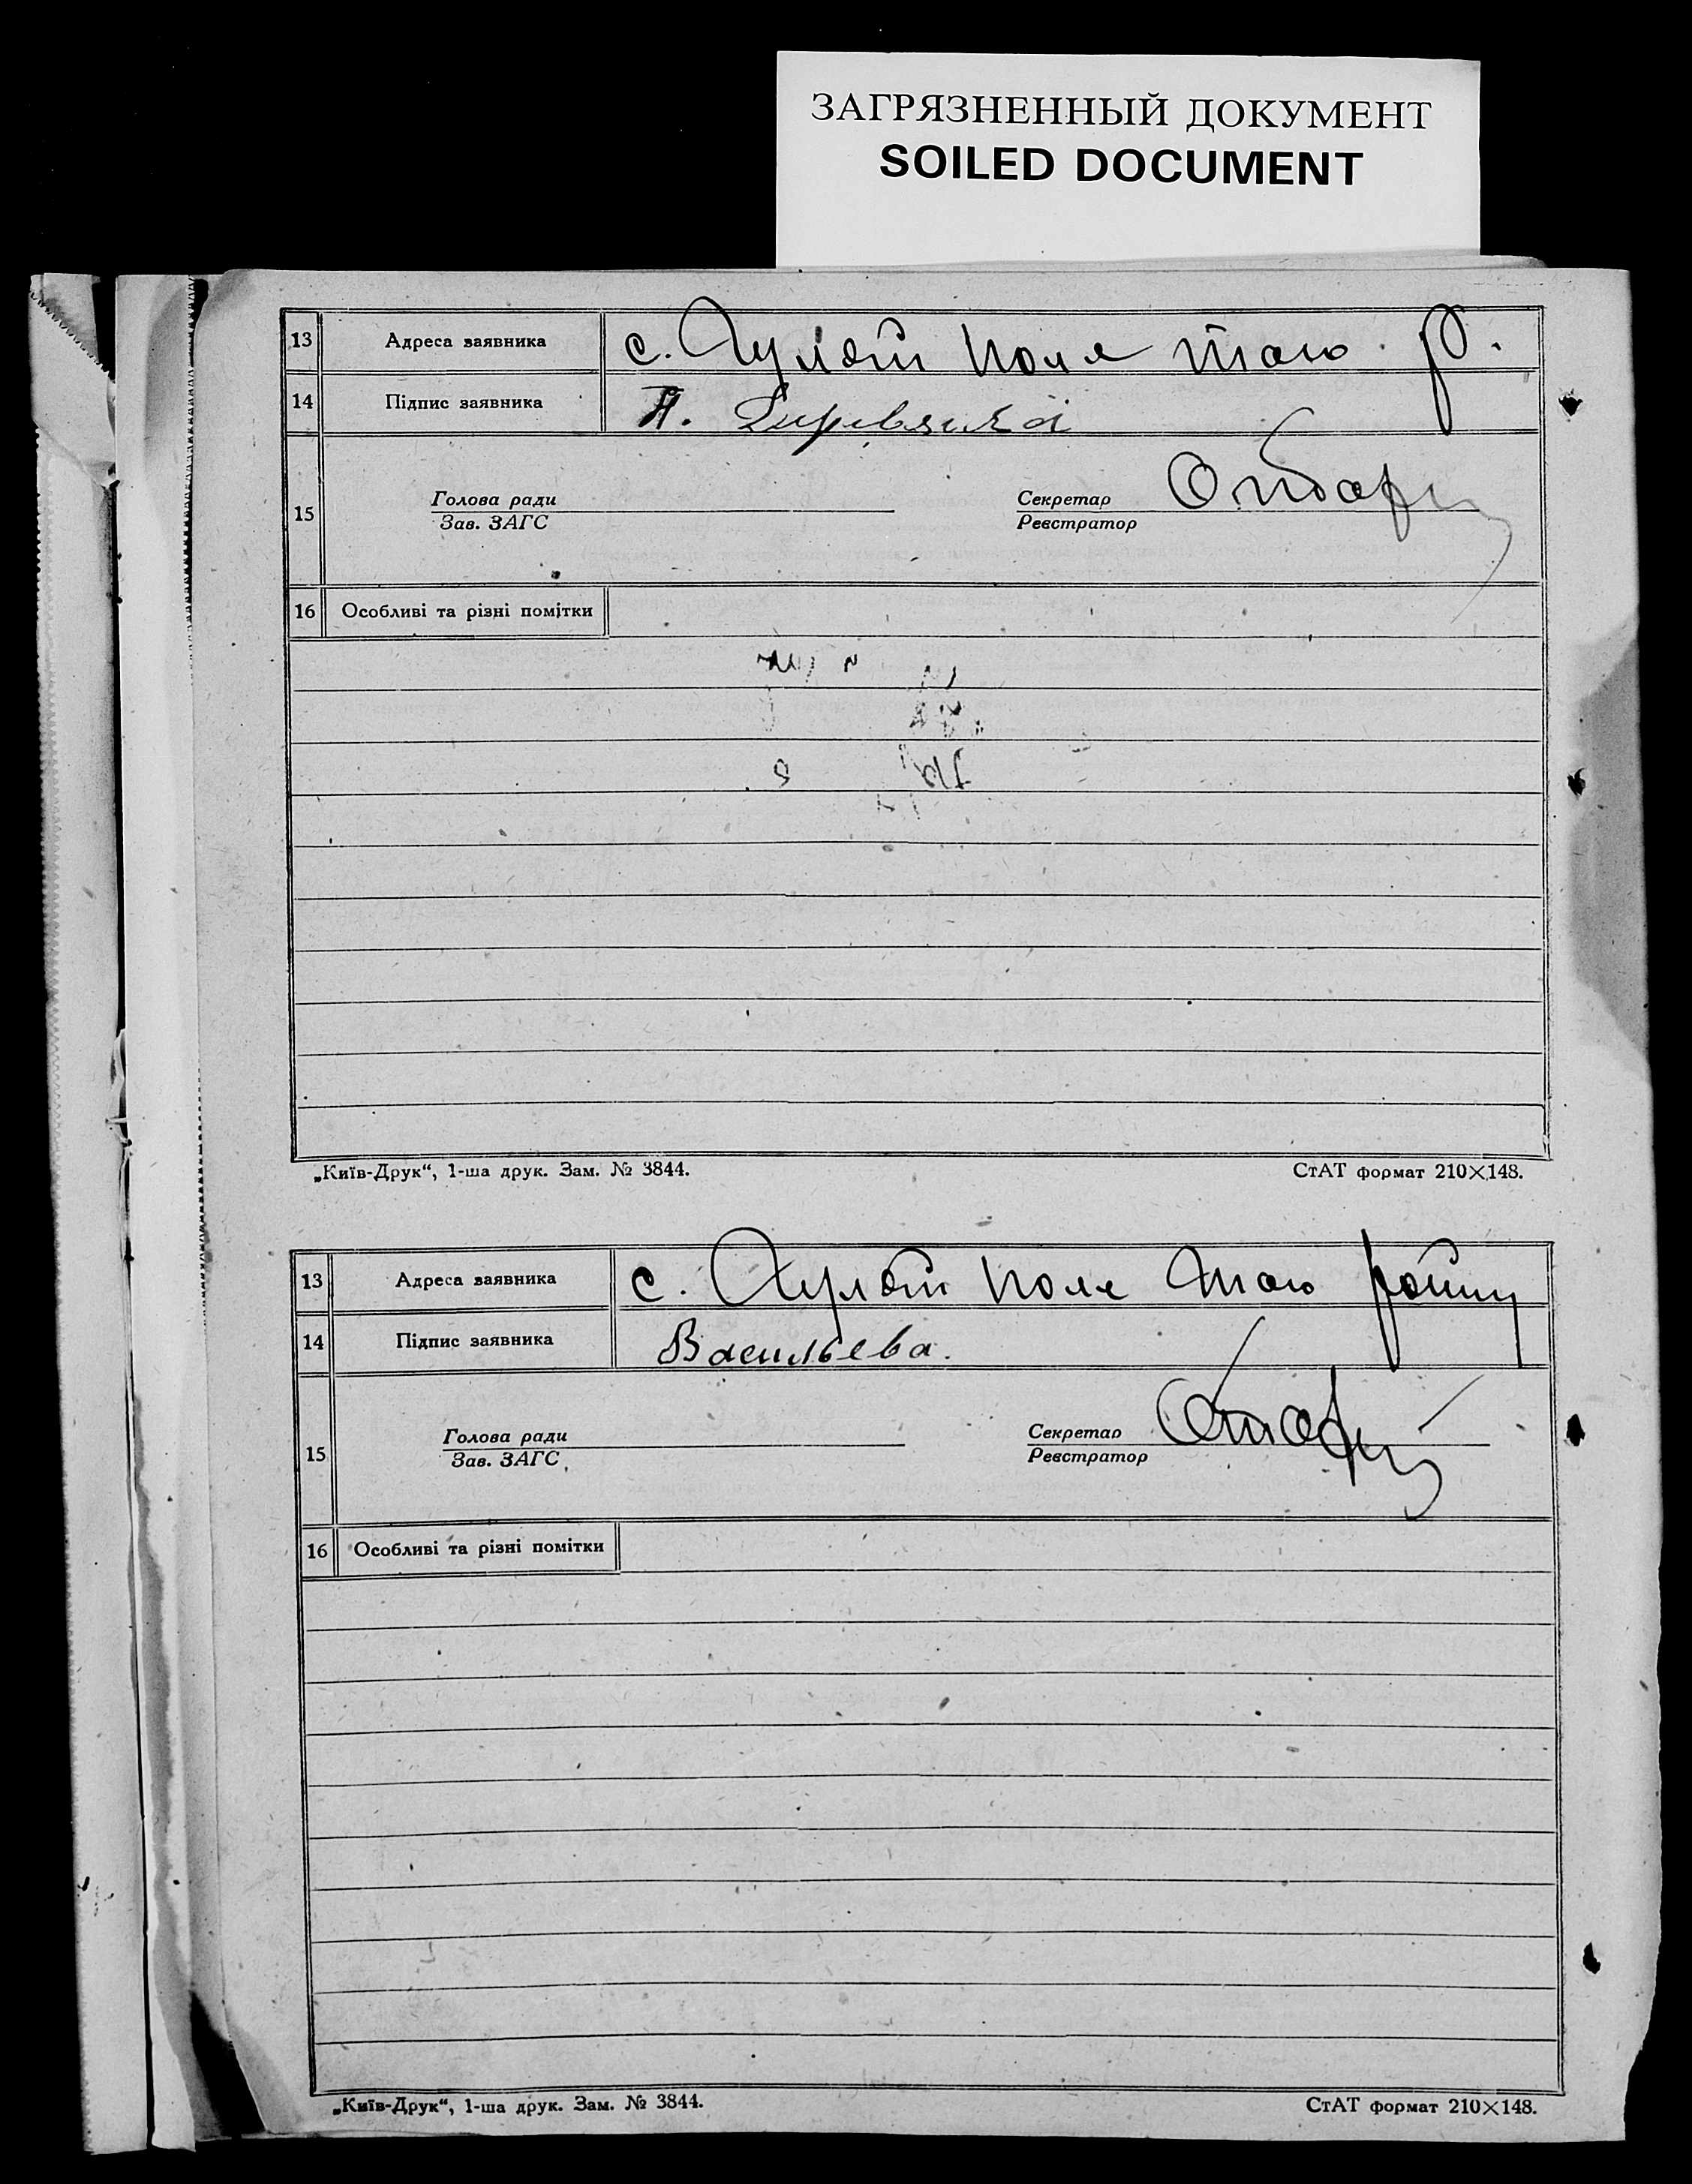 ЗАГРЯЗНЕННЫЙ ДОКУМЕНТ
SOILED DOCUMENT
13 Адреса заявника с. Гуляй Поле того р.
14 Підпис заявника П.
15 Голова ради Секретар
Зав. ЗАГС Реєстратор
16 Особливі та різні помітки
„Київ-Друк“, 1-ша друк. Зам. № 3844. СтАТ формат 210×148.
13 Адреса заявника с. Гуляй Поле
14 Підпис заявника Васильева.
15 Голова ради Секретар
Зав. ЗАГС Реєстратор
16 Особливі та різні помітки
„Київ-Друк“, 1-ша друк. Зам. № 3844. СтАТ формат 210×148.